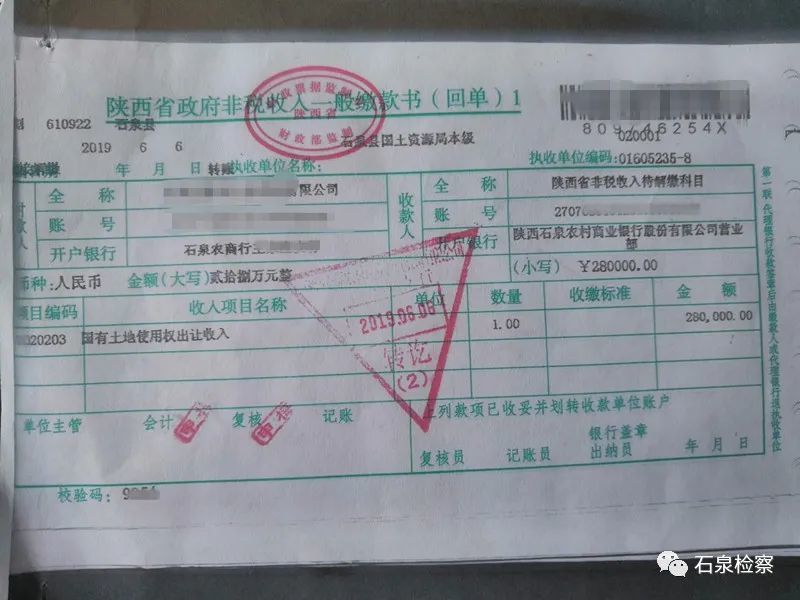 陕西省政府非税收入一般缴款书（回单）1
财政票据监制
陕西省
财政部监制
610922 石泉县
809 46254X
020001
2019 6 6
年 月 日 转账
执收单位名称：
石泉县国土资源局本级
执收单位编码：01605235-8
付款人
全 称
有限公司
收款人
全 称
陕西省非税收入待解缴科目
账 号
账 号
2707
开户银行
石泉农商行
开户银行
陕西石泉农村商业银行股份有限公司营业部
币种：人民币
金额（大写）贰拾捌万元整
（小写） ￥280000.00
项目编码
收入项目名称
单位
数量
收缴标准
金 额
020203
国有土地使用权出让收入
1.00
280,000.00
2019.06.06
转讫
(2)
单位主管
会计
复核
记账
上列款项已收妥并划转收款单位账户
银行盖章
复核员
记账员
出纳员
年 月 日
校验码：
第一联 代理银行收款签章后由缴款人或代理银行退执收单位
石泉检察